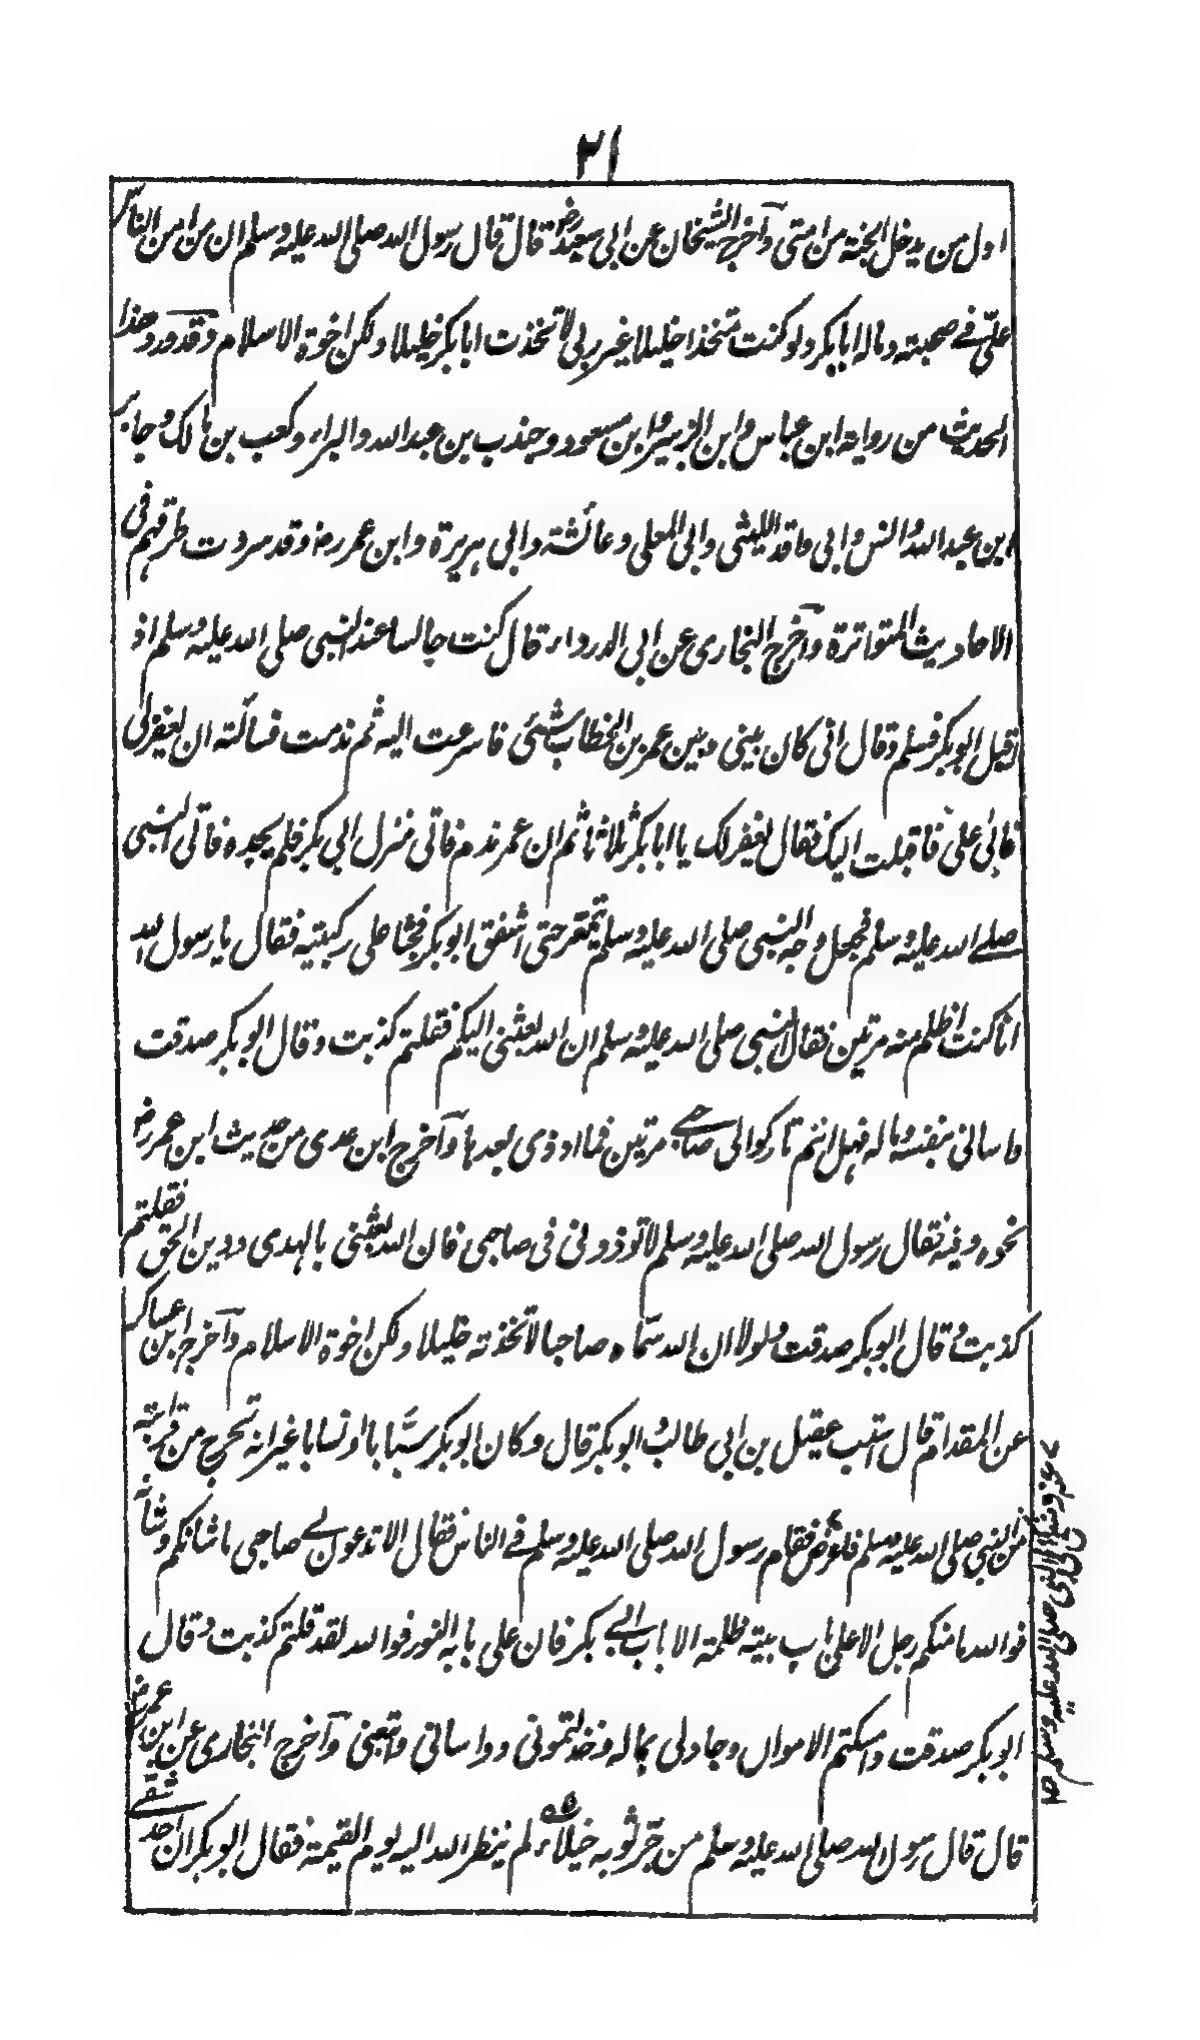 ٢١
اول من يدخل الجنة من امتى وآخرج الشيخان عن ابى سعيد رض قال قال رسول الله صلى الله عليه وسلم ان من امن الناس
علىّ فے صحبته وماله ابابكر ولو كنت متخذا خليلا غير ربى لاتخذت ابابكر خليلا ولكن اخوة الاسلام وقد ورد هذا
الحديث من رواية ابن عباس وابن الزبير وابن مسعود وجندب بن عبد الله والبراء وكعب بن مالك وجابر
ابن عبد الله وانس وابى واقد الليثى وابى المعلى وعائشة وابى هريرة وابن عمر رض وقد سردت طرقهم فى
الاحاديث المتواترة وآخرج البخارى عن ابى الدرداء قال كنت جالسا عند النبى صلى الله عليه وسلم اذ
اقبل ابو بكر فسلم وقال انى كان بينى وبين عمر بن الخطاب شئى فاسرعت اليه ثم ندمت فسالته ان يغفر لى
فابى علىّ فاقبلت اليك فقال يغفر لك يا ابابكر ثلاثا ثم ان عمر ندم فاتى منزل ابى بكر فلم يجده فاتى النبى
صلے الله عليه وسلم فجعل وجه النبى صلى الله عليه وسلم يتمعر حتى اشفق ابو بكر فجثا على ركبتيه فقال يا رسول الله
انا كنت اظلم منه مرتين فقال النبى صلى الله عليه وسلم ان الله بعثنى اليكم فقلتم كذبت وقال ابو بكر صدقت
واسانى بنفسه وماله فهل انتم تاركوا لى صاحبے مرتين فما اوذى بعدها وآخرج ابن عدى من حديث ابن عمر رض
نحوه وفيه فقال رسول الله صلى الله عليه وسلم لا توذونى فى صاحبى فان الله بعثنى بالهدى ودين الحق فقلتم
كذبت وقال ابو بكر صدقت ولولا ان الله سماه صاحبا لاتخذته خليلا ولكن اخوة الاسلام وآخرج ابن عساكر
عن المقدام قال استب عقيل بن ابى طالب وابو بكر قال وكان ابو بكر سبّابا او نسابا غير انه تحرج من قرابته
من النبى صلى الله عليه وسلم فاعرض فقام رسول الله صلى الله عليه وسلم فے الناس فقال الا تدعون لے صاحبى ما شانكم وشانه
فوالله ما منكم رجل الا على باب بيته ظلمة الا باب ابے بكر فان على بابه النور فوالله لقد قلتم كذبت وقال
ابو بكر صدقت وامسكتم الاموال وجاد لى بماله وخذلتمونى وواسانى واتبعنى وآخرج البخارى عن ابن عمر رض
قال قال رسول الله صلى الله عليه وسلم من جرّ ثوبه خيلاء لم ينظر الله اليه يوم القيمة فقال ابو بكر ان احد شقے